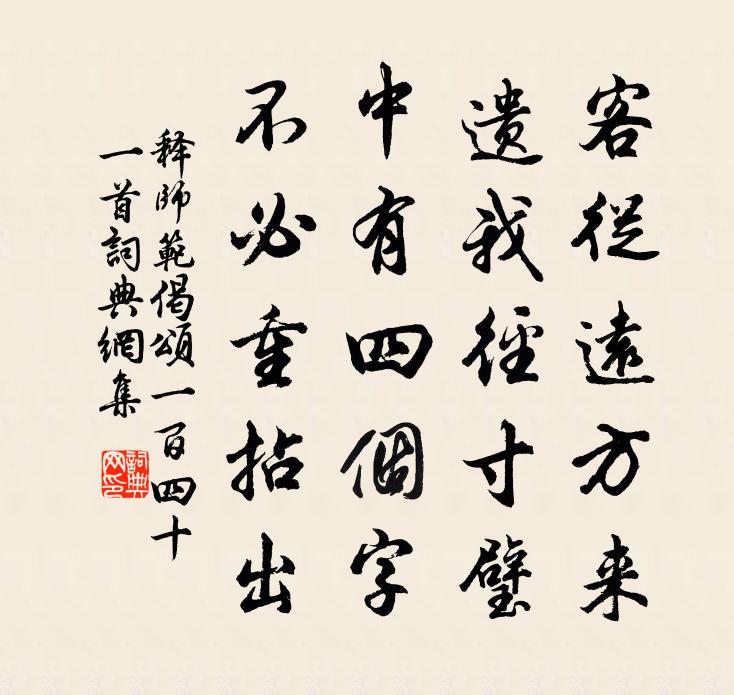 客從遠方来
遗我徑寸璧
中有四個字
不必重拈出
释師範偈頌一百四十
一首詞典網集
詞典网印